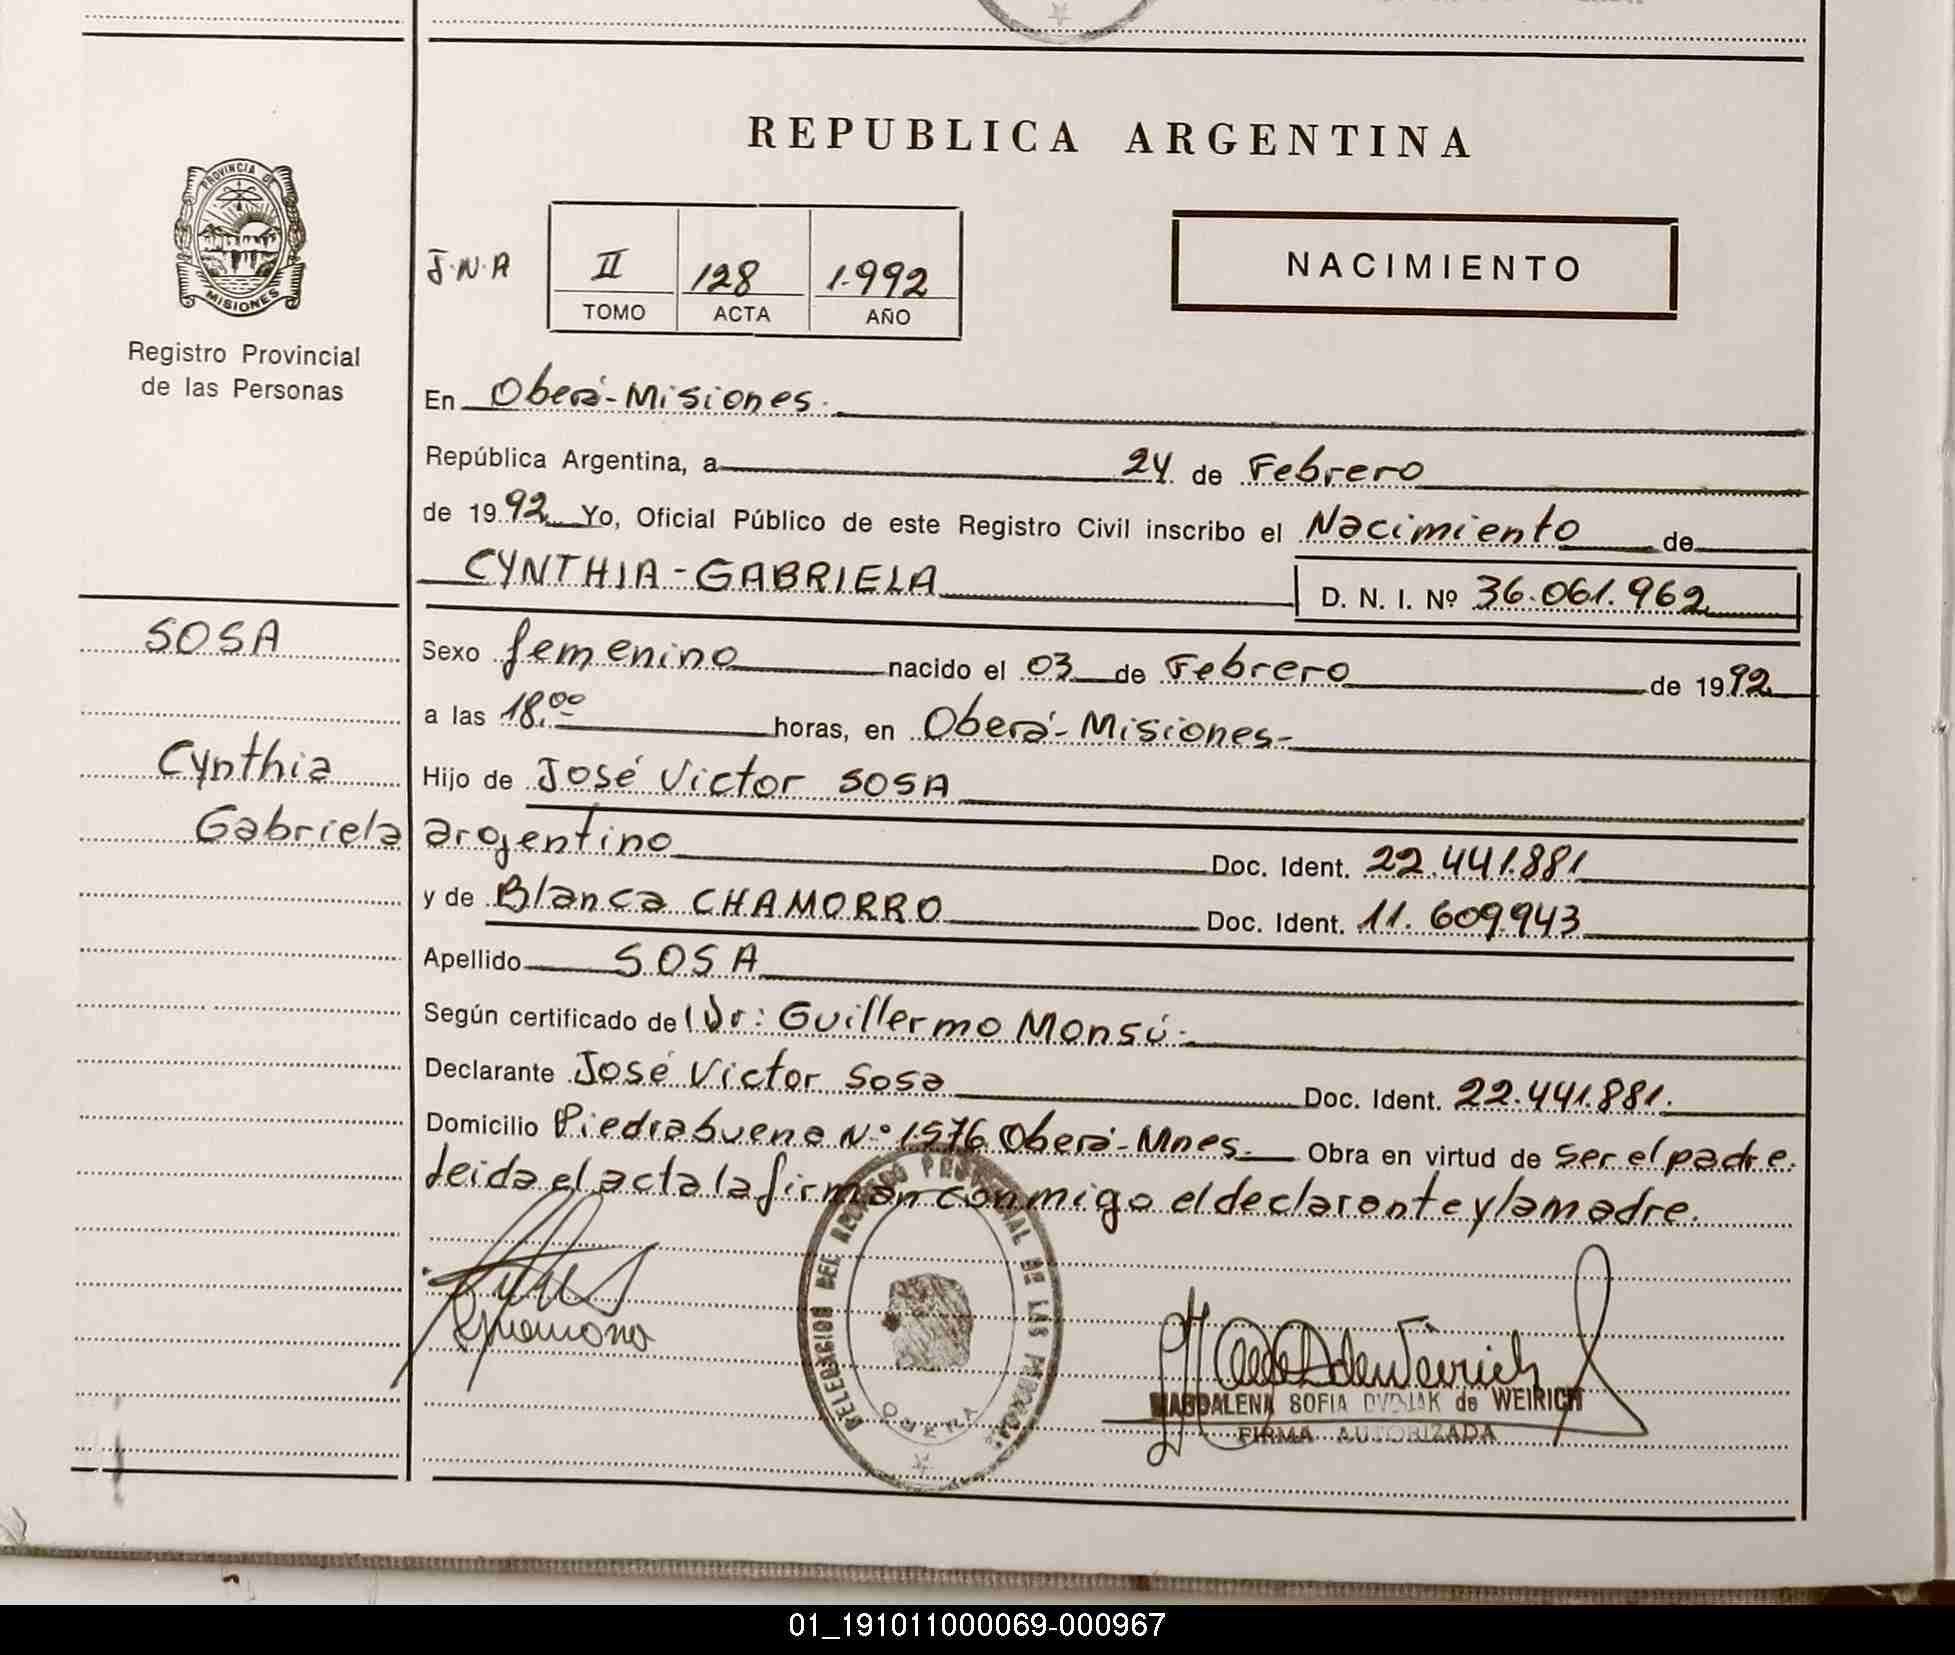 REPUBLICA ARGENTINA
PROVINCIA DE
MISIONES
Registro Provincial
de las Personas
J.N.A
II 128 1.992
TOMO ACTA AÑO
NACIMIENTO
En Oberá-Misiones.
República Argentina, a 24 de Febrero
de 1992 Yo, Oficial Público de este Registro Civil inscribo el Nacimiento de
CYNTHIA-GABRIELA D. N. I. Nº 36.061.962
SOSA
Cynthia
Gabriela
Sexo femenino nacido el 03 de Febrero de 1992
a las 18.00 horas, en Oberá-Misiones-
Hijo de José Victor SOSA
argentino Doc. Ident. 22.441.881
y de Blanca CHAMORRO Doc. Ident. 11.609.943
Apellido SOSA
Según certificado del Dr: Guillermo Monsú-
Declarante José Victor Sosa Doc. Ident. 22.441.881.
Domicilio Piedrabuena Nº 1.576 Oberá-Mnes. Obra en virtud de ser el padre.
Leida el acta la firman conmigo el declarante y la madre.
DELEGACION DEL REGISTRO PROVINCIAL DE LAS PERSONAS
OBERA
MAGDALENA SOFIA DVDJAK de WEIRICH
FIRMA AUTORIZADA
01_191011000069-000967